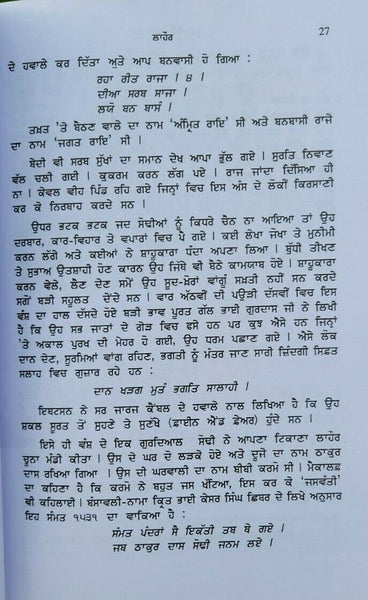 ਲਾਹੌਰ 27
ਦੇ ਹਵਾਲੇ ਕਰ ਦਿੱਤਾ ਅਤੇ ਆਪ ਬਨਵਾਸੀ ਹੋ ਗਿਆ :
ਰਹਾ ਰੀਤ ਰਾਜਾ । ੪ ।
ਦੀਆ ਸਰਬ ਸਾਜਾ ।
ਲਯੋ ਬਨ ਬਾਸੰ ।
ਤਖ਼ਤ 'ਤੇ ਬੈਠਣ ਵਾਲੇ ਦਾ ਨਾਮ 'ਅੰਮ੍ਰਿਤ ਰਾਇ' ਸੀ ਅਤੇ ਬਨਬਾਸੀ ਰਾਜੇ
ਦਾ ਨਾਮ 'ਜਗਤ ਰਾਇ' ਸੀ ।
ਬੇਦੀ ਵੀ ਸਰਬ ਸੁੱਖਾਂ ਦਾ ਸਮਾਨ ਦੇਖ ਆਪਾ ਭੁੱਲ ਗਏ । ਸੁਰਤਿ ਨਿਵਾਣ
ਵੱਲ ਚਲੀ ਗਈ । ਕੁਕਰਮ ਕਰਨ ਲੱਗ ਪਏ । ਰਾਜ ਜਾਂਦਾ ਦਿੱਸਿਆ ਹੀ
ਨਾ । ਕੇਵਲ ਵੀਹ ਪਿੰਡ ਰਹਿ ਗਏ ਜਿਨ੍ਹਾਂ ਵਿਚ ਇਸ ਅੰਸ ਦੇ ਲੋਕੀਂ ਕਿਰਸਾਣੀ
ਕਰ ਕੇ ਨਿਰਬਾਹ ਕਰਦੇ ਸਨ ।
ਉਧਰ ਭਟਕ ਭਟਕ ਜਦ ਸੋਢੀਆਂ ਨੂੰ ਕਿਧਰੇ ਚੈਨ ਨਾ ਆਇਆ ਤਾਂ ਉਹ
ਦਰਬਾਰ, ਕਾਰ-ਵਿਹਾਰ ਤੇ ਵਪਾਰਾਂ ਵਿਚ ਪੈ ਗਏ । ਕਈ ਲੇਖਾ ਜੋਖਾ ਤੇ ਮੁਨੀਮੀ
ਕਰਨ ਲੱਗੇ ਅਤੇ ਕਈਆਂ ਨੇ ਸ਼ਾਹੂਕਾਰਾ ਧੰਦਾ ਅਪਣਾ ਲਿਆ । ਬੁੱਧੀ ਤੀਖਣ
ਤੇ ਸੁਭਾਅ ਉਤਸ਼ਾਹੀ ਹੋਣ ਕਾਰਨ ਉਹ ਜਿੱਥੇ ਵੀ ਬੈਠੇ ਕਾਮਯਾਬ ਹੋਏ । ਸ਼ਾਹੂਕਾਰਾ
ਕਰਨ ਵੇਲੇ, ਲੈਣ ਦੇਣ ਸਮੇਂ ਉਹ ਸੂਦ-ਖ਼ੋਰਾਂ ਵਾਂਗੂੰ ਸਖ਼ਤੀ ਨਹੀਂ ਸਨ ਕਰਦੇ
ਸਗੋਂ ਬੜੀ ਸਹੂਲਤ ਦੇਂਦੇ ਸਨ । ਵਾਰ ਅੱਠਵੀਂ ਦੀ ਪਉੜੀ ਦੱਸਵੀਂ ਵਿਚ ਇਸ
ਵੰਸ਼ ਦਾ ਹਾਲ ਦੱਸਦੇ ਹੋਏ ਬੜੀ ਭਾਵ ਪੂਰਤ ਗੱਲ ਭਾਈ ਗੁਰਦਾਸ ਜੀ ਨੇ ਲਿਖੀ
ਹੈ ਕਿ ਉਹ ਸਭ ਜਾਤਾਂ ਦੇ ਗੇੜ ਵਿਚ ਫਸੇ ਹਨ ਪਰ ਕੁਝ ਐਸੇ ਹਨ ਜਿਨ੍ਹਾਂ
'ਤੇ ਅਕਾਲ ਪੁਰਖ ਦੀ ਮੇਹਰ ਹੋ ਗਈ, ਉਹ ਧਰਮ ਪਛਾਣ ਗਏ । ਐਸੇ ਲੋਕ
ਦਾਨ ਦੇਣ, ਸੂਰਮਿਆਂ ਵਾਂਗ ਰਹਿਣ, ਭਗਤੀ ਨੂੰ ਮੰਤਰ ਜਾਣ ਸਾਰੀ ਜ਼ਿੰਦਗੀ ਸਿਫ਼ਤ
ਸਲਾਹ ਵਿਚ ਗੁਜ਼ਾਰ ਰਹੇ ਹਨ :
ਦਾਨ ਖੜਗ ਮੁਤੰ ਭਗਤਿ ਸਾਲਾਹੀ ।
ਇਬਟਸਨ ਨੇ ਸਰ ਜਾਰਜ ਕੈਂਬਲ ਦੇ ਹਵਾਲੇ ਨਾਲ ਲਿਖਿਆ ਹੈ ਕਿ ਉਹ
ਸ਼ਕਲ ਸੂਰਤ ਤੋਂ ਸੁਹਣੇ ਤੇ ਸੁਣੱਖੇ (ਫ਼ਾਈਨ ਐਂਡ ਫ਼ੇਅਰ) ਹੁੰਦੇ ਸਨ ।
ਇਸੇ ਹੀ ਵੰਸ਼ ਦੇ ਇਕ ਗੁਰਦਿਆਲ ਸੋਢੀ ਨੇ ਆਪਣਾ ਟਿਕਾਣਾ ਲਾਹੌਰ
ਚੂਨਾ ਮੰਡੀ ਕੀਤਾ । ਉਸ ਦੇ ਘਰ ਦੋ ਲੜਕੇ ਹੋਏ ਅਤੇ ਦੂਜੇ ਦਾ ਨਾਮ ਠਾਕੁਰ
ਦਾਸ ਰਖਿਆ ਗਿਆ । ਉਸ ਦੀ ਘਰਵਾਲੀ ਦਾ ਨਾਮ ਬੀਬੀ ਕਰਮੋ ਸੀ । ਮੈਕਾਲਫ਼
ਦਾ ਕਹਿਣਾ ਹੈ ਕਿ ਕਰਮੋ ਨੇ ਬਹੁਤ ਜਸ ਖੱਟਿਆ, ਇਸ ਕਰ ਕੇ 'ਜਸਵੰਤੀ'
ਵੀ ਕਹਿਲਾਈ । ਬੰਸਾਵਲੀ-ਨਾਮਾ ਕ੍ਰਿਤ ਭਾਈ ਕੇਸਰ ਸਿੰਘ ਛਿਬਰ ਦੇ ਲਿਖੇ ਅਨੁਸਾਰ
ਇਹ ਸੰਮਤ ੧੫੩੧ ਦਾ ਵਾਕਿਆ ਹੈ :
ਸੰਮਤ ਪੰਦਰਾਂ ਸੈ ਇਕੱਤੀ ਤਬ ਥੇ ਗਏ ।
ਜਬ ਠਾਕੁਰ ਦਾਸ ਸੋਢੀ ਜਨਮ ਲਏ ।